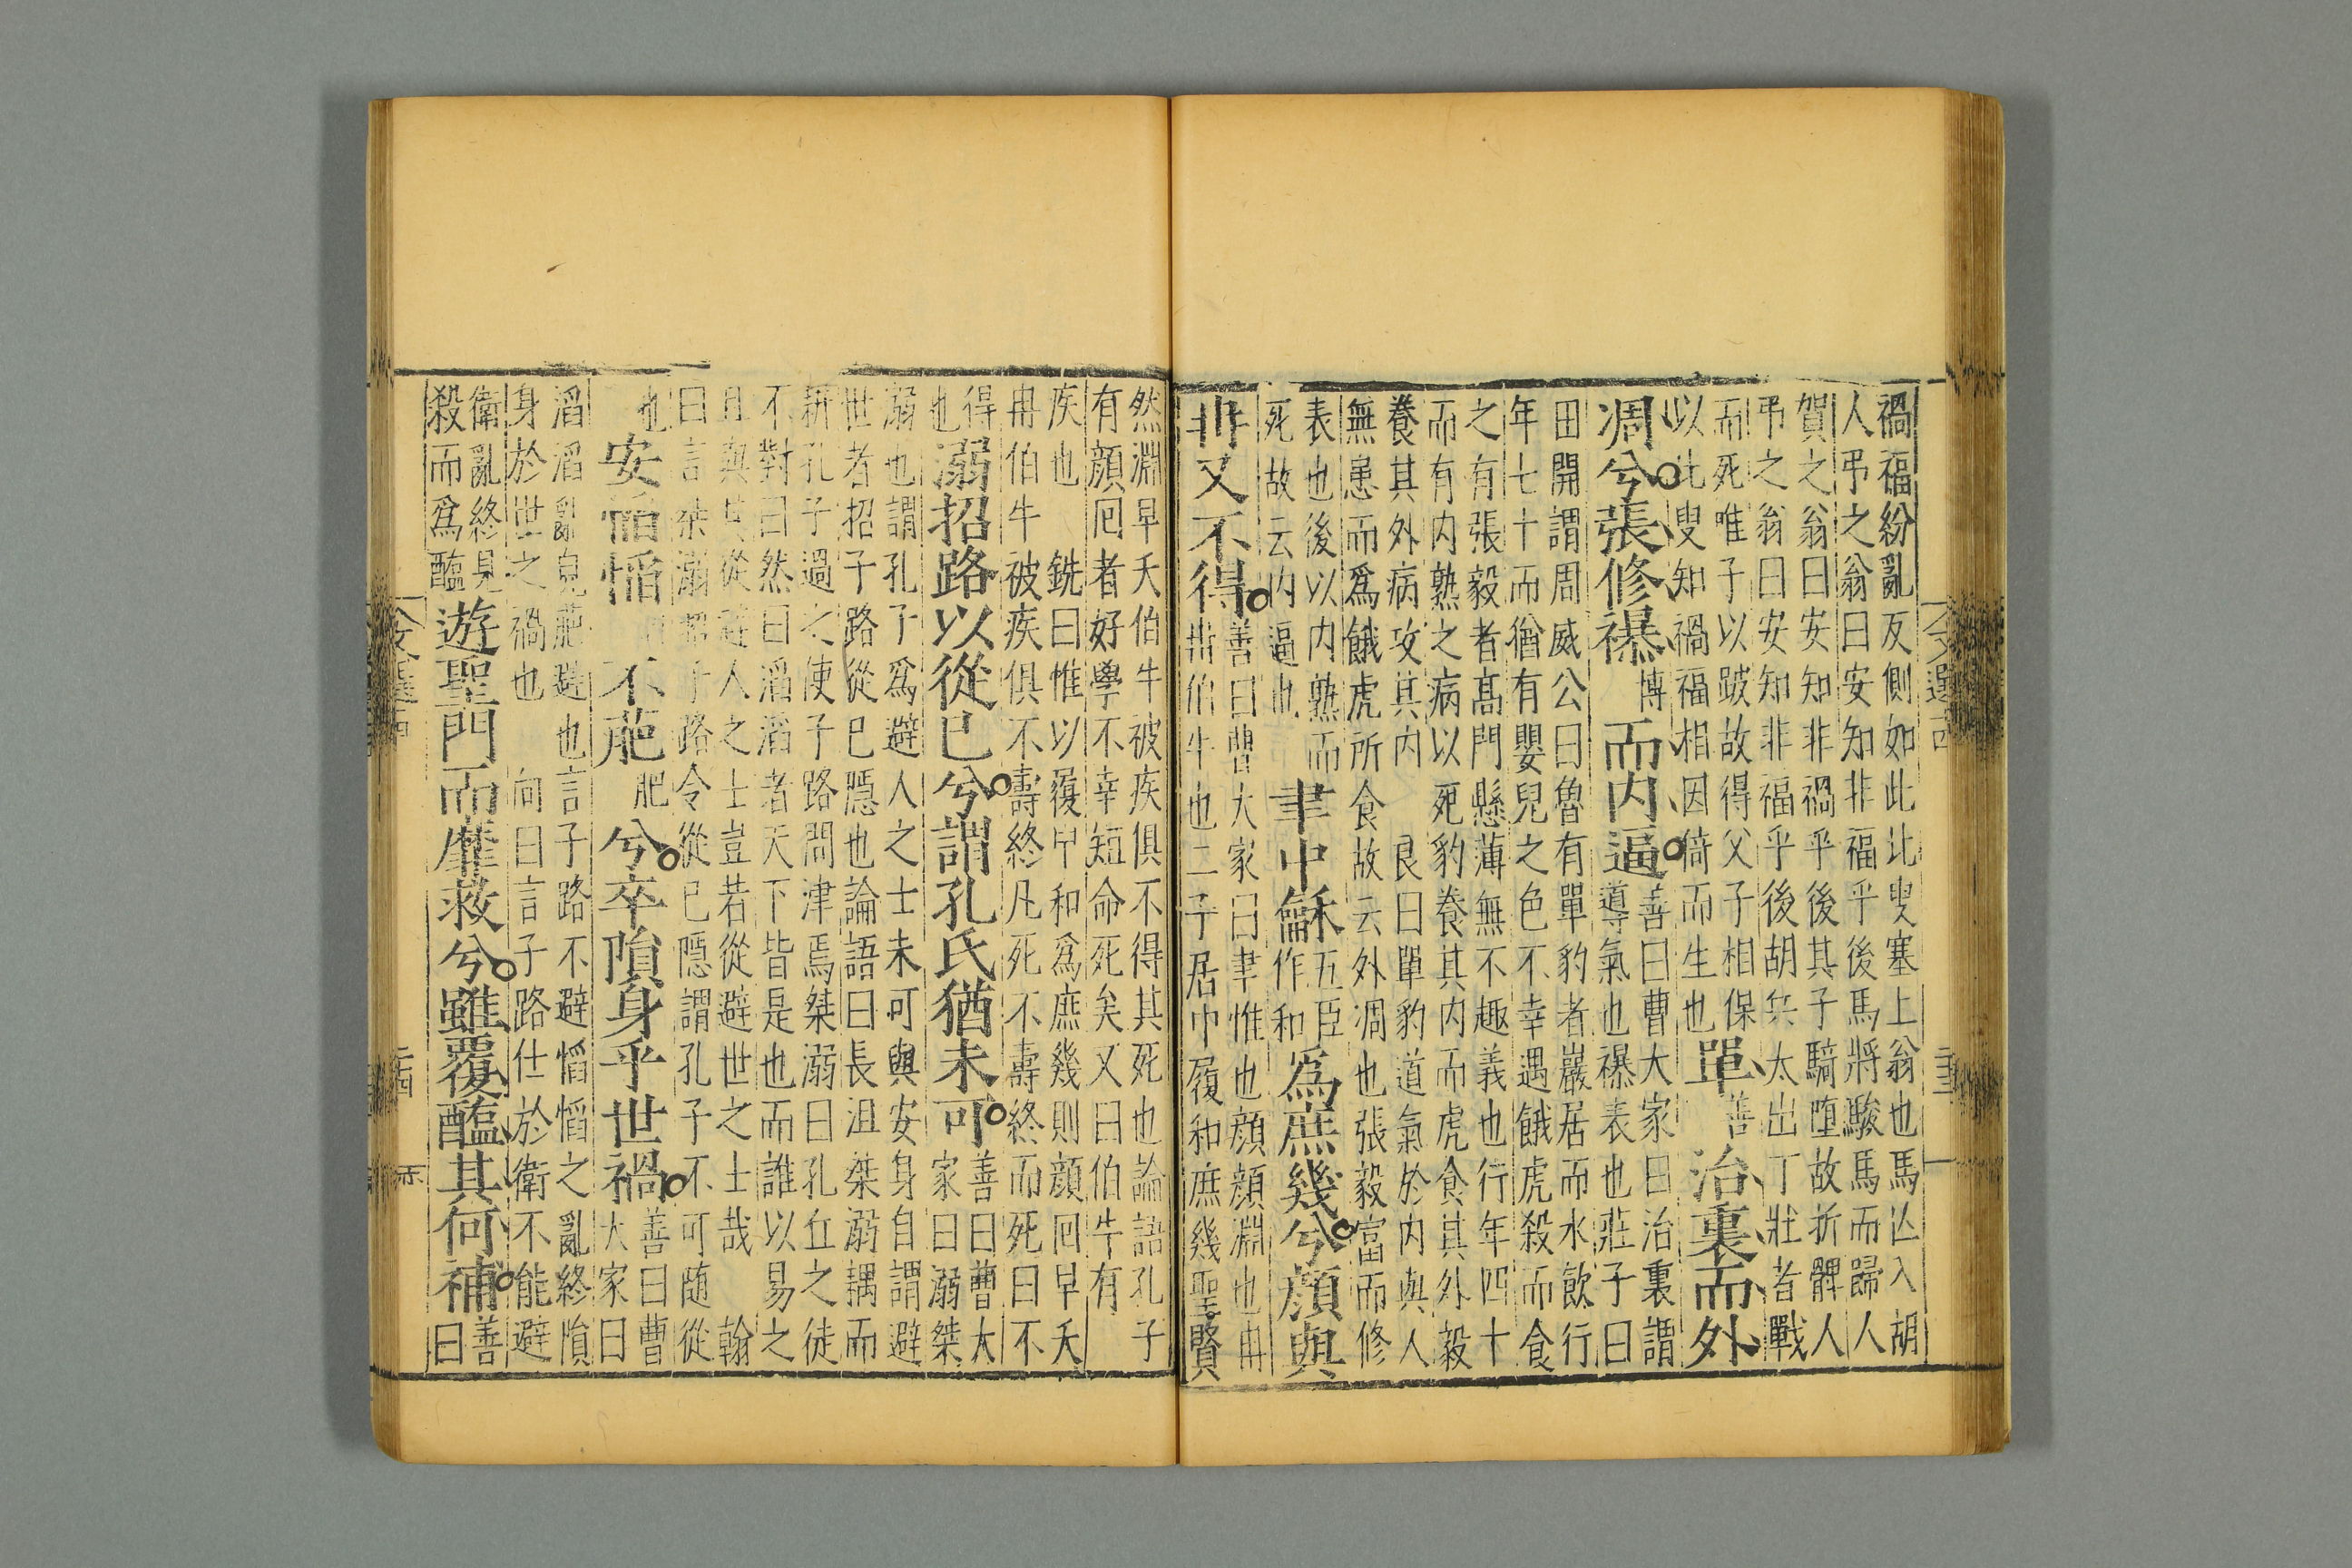 禍福紛亂反側如此北叟塞上翁也馬亾入胡
人弔之翁曰安知非福乎後馬將駿馬而歸人
賀之翁曰安知非禍乎後其子騎墮故折髀人
弔之翁曰安知非福乎後胡兵太出丁壯者戰
而死唯子以跛故得父子相保
以北叟知禍福相因倚而生也
單善治裏而外
凋兮張修襮博而内逼
善曰曹大家曰治裏謂
導氣也襮表也莊子曰
田開謂周威公曰魯有單豹者巖居而水飲行
年七十而猶有嬰兒之色不幸遇餓虎殺而食
之有張毅者高門懸薄無不趣義也行年四十
而有内熟之病以死豹養其内而虎食其外毅
養其外病攻其内 良曰單豹道氣於内與人
無患而爲餓虎所食故云外凋也張毅富而修
表也後以内熟而
死故云内逼也
聿中龢五臣作和爲庶幾兮顔與
冉又不得
善曰曹大家曰聿惟也顔顔淵也冉
冉伯牛也二子居中履和庶幾聖賢
然淵早夭伯牛被疾俱不得其死也論語孔子
有顔囘者好學不幸短命死矣又曰伯牛有
疾也 銑曰惟以履中和爲庶幾則顔囘早夭
冉伯牛被疾俱不壽終凡死不壽終而死曰不
得
也
溺招路以從已兮謂孔氏猶未可
善曰曹大
家曰溺桀
溺也謂孔子爲避人之士未可與安身自謂避
世者招子路從已隱也論語曰長沮桀溺耦而
耕孔子過之使子路問津焉桀溺曰孔丘之徒
不對曰然曰滔滔者天下皆是也而誰以易之
且與其從避人之士豈若從避世之士哉 翰
曰言桀溺招子路令從已隱謂孔子不可隨從
也
安慆慆不萉肥兮卒隕身乎世禍
善曰曹
大家曰
滔滔亂皃萉避也言子路不避慆慆之亂終隕
身於世之禍也 向曰言子路仕於衛不能避
衛亂終見
殺而爲醢
遊聖門而靡救兮雖覆醢其何補
善
曰